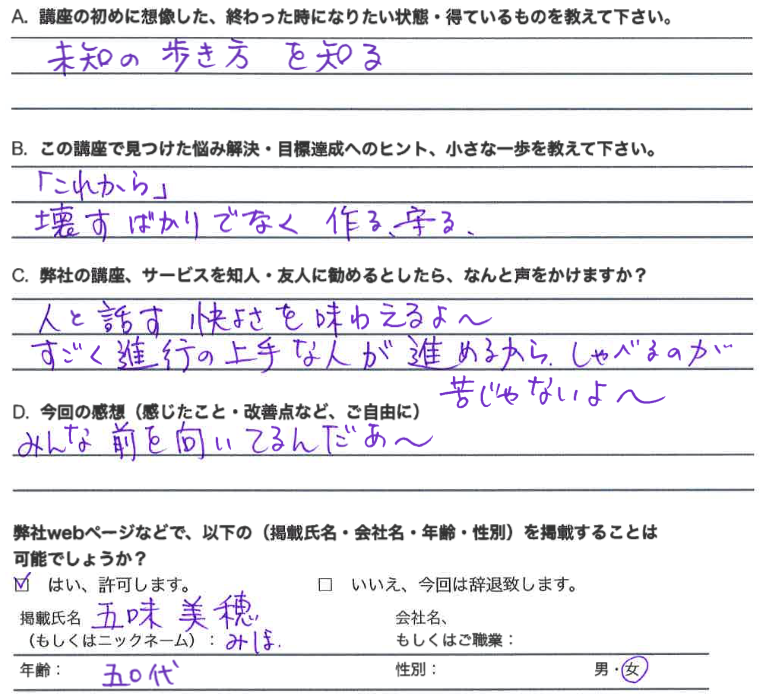 A. 講座の初めに想像した、終わった時になりたい状態・得ているものを教えて下さい。
未知の 歩き方 を知る
B. この講座で見つけた悩み解決・目標達成へのヒント、小さな一歩を教えて下さい。
「これから」
壊すばかりでなく 作る、守る、
C. 弊社の講座、サービスを知人・友人に勧めるとしたら、なんと声をかけますか？
人と話す 快よさを味わえるよ〜
すごく進行の上手な人が進めるから、しゃべるのが
苦じゃないよ〜
D. 今回の感想（感じたこと・改善点など、ご自由に）
みんな前を向いてるんだあ〜
弊社webページなどで、以下の（掲載氏名・会社名・年齢・性別）を掲載することは
可能でしょうか？
☑ はい、許可します。 □ いいえ、今回は辞退致します。
掲載氏名 五味 美穂 会社名、
（もしくはニックネーム）： みほ. もしくはご職業：
年齢： 五〇代 性別： 男・女